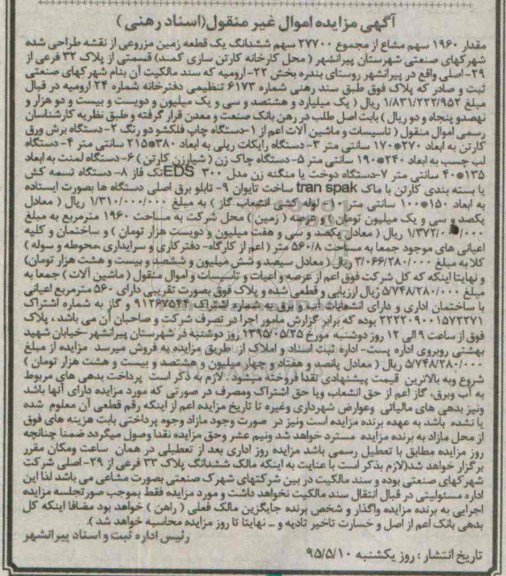 آگهی مزایده اموال غیر منقول(اسناد رهنی )
مقدار ۱۹۶۰ سهم مشاع از مجموع ۲۷۷۰۰ سهم ششدانگ یک قطعه زمین مزروعی از نقشه طراحی شده
شهرکهای صنعتی شهرستان پیرانشهر ( محل کارخانه کارتن سازی کمند) قسمتی از پلاک ۳۲ فرعی از
۲۹-اصلی واقع در پیرانشهر روستای بندره بخش ۲۲- ارومیه که سند مالکیت آن بنام شهرکهای صنعتی
ثبت و صادر که پلاک فوق طبق سند رهنی شماره ۶۱۷۳ تنظیمی دفترخانه شماره ۲۴ ارومیه در قبال
مبلغ ۱/۸۳۱/۲۲۲/۹۵۲ ریال ( یک میلیارد و هشتصد و سی و یک میلیون و دویست و بیست و دو هزار و
نهصدو پنجاه و دو ریال ) بابت اصل طلب در رهن بانک صنعت و معدن قرار گرفته و طبق نظریه کارشناسان
رسمی اموال منقول ( تاسیسات و ماشین آلات اعم از ۱-دستگاه چاپ فلکسو دو رنگ ۲- دستگاه برش ورق
کارتن به ابعاد ۲۷۰*۱۷۰ سانتی متر ۳- دستگاه رایکات ریلی به ابعاد ۳۸۰*۲۱۵ سانتی متر ۴- دستگاه
لب چسب به ابعاد ۲۴۰*۱۹۰ سانتی متر ۵- دستگاه چاک زن ( شیارزن کارتن ) ۶- دستگاه لمنت به ابعاد
۱۳۵*۴۰ سانتی متر ۷-دستگاه دوخت یا منگنه زن مدل EDS ۳۰۰ تک فاز ۸- دستگاه تسمه کش
یا بسته بندی کارتن با ماک tran spak ساخت تایوان ۹- تابلو برق اصلی دستگاه ها بصورت ایستاده
به ابعاد ۱۵۰*۱۰۰ سانتی متر ۱۰- لوله کشی انشعاب گاز ) به مبلغ ۱/۳۱۰/۰۰۰/۰۰۰ ریال ( معادل
یکصد و سی و یک میلیون تومان ) و عرصه ( زمین ) محل شرکت به مساحت ۱۹۶۰ مترمربع به مبلغ
۱/۳۷۲/۰۰۰/۰۰۰ ریال ( معادل یکصد و سی و هفت میلیون و دویست هزار تومان ) و ساختمان و کلیه
اعیانی های موجود جمعا به مساحت ۵۶۰/۸ متر ( اعم از کارگاه- دفترکاری و سرایداری ،محوطه و سوله )
کلا به مبلغ ۳/۰۶۶/۲۸۰/۰۰۰ ریال ( معادل سیصد و شش میلیون و ششصد و بیست و هشت هزار تومان)
و نهایتا اینکه که کل شرکت فوق اعم از عرصه و اعیان و تاسیسات و اموال منقول ( ماشین آلات ) جمعا به
مبلغ ۵/۷۴۸/۲۸۰/۰۰۰ ریال ارزیابی و قطعی شده و پلاک فوق بصورت تقریبی دارای ۵۶۰ مترمربع اعیانی
با ساختمان اداری و دارای انشعابات آب و برق به شماره اشتراک ۹۱۲۶۷۵۴۴ و گاز به شماره اشتراک
۲۲۲۲۰۹۰۰۱۵۷۲۲۷۱ بوده که برابر گزارش مامور اجرا در تصرف شرکت و صاحبان آن می باشد، پلاک
فوق از ساعت ۹ الی ۱۲ روز دوشنبه مورخ ۱۳۹۵/۰۵/۲۵ روز دوشنبه در شهرستان پیرانشهر -خیابان شهید
بهشتی روبروی اداره پست- اداره ثبت اسناد و املاک از طریق مزایده به فروش میرسد مزایده از مبلغ
۵/۷۴۸/۲۸۰/۰۰۰ ریال ( معادل پانصد و هفتاد و چهار میلیون و هشتصد و بیست و هشت هزار تومان )
شروع وبه بالاترین قیمت پیشنهادی نقدا فروخته میشود . لازم به ذکر است پرداخت بدهی های مربوط
به آب وبرق، گاز اعم از حق انشعاب ویا حق اشتراک ومصرف در صورتی که مورد مزایده دارای آنها باشد
ونیز بدهی های مالیاتی وعوارض شهرداری وغیره تا تاریخ مزایده اعم از اینکه رقم قطعی آن معلوم شده
یا نشده باشد به عهده برنده مزایده است ونیز در صورت وجود مازاد وجوه پرداختی بابت هزینه های فوق
از محل مازاد به برنده مزایده مسترد خواهد شد ونیم عشر وحق مزایده نقدا وصول میگردد ضمنا چنانچه
روز مزایده مطابق با تعطیل رسمی باشد مزایده روز اداری بعد از تعطیلی در همان ساعت ومکان مقرر
برگزار خواهد شد(لازم بذکر است با عنایت به اینکه مالک ششدانگ پلاک ۳۲ فرعی از ۲۹- اصلی شرکت
شهرکهای صنعتی بوده و سند مالکیت در بین شرکتهای شهرک صنعتی بصورت مشاعی می باشد لذا این
اداره مسئولیتی در قبال انتقال سند مالکیت نخواهد داشت و مورد مزایده فقط بموجب صورتجلسه مزایده
اجرایی به برنده مزایده واگذار و شخص برنده جایگزین مالک فعلی ( راهن ) خواهد بود مضافا اینکه کل
بدهی بانک اعم از اصل و خسارت تاخیر تادیه و ــ نهایتا تا روز مزایده محاسبه خواهد شد ).
رئیس اداره ثبت و اسناد پیرانشهر
تاریخ انتشار : روز یکشنبه ۹۵/۵/۱۰